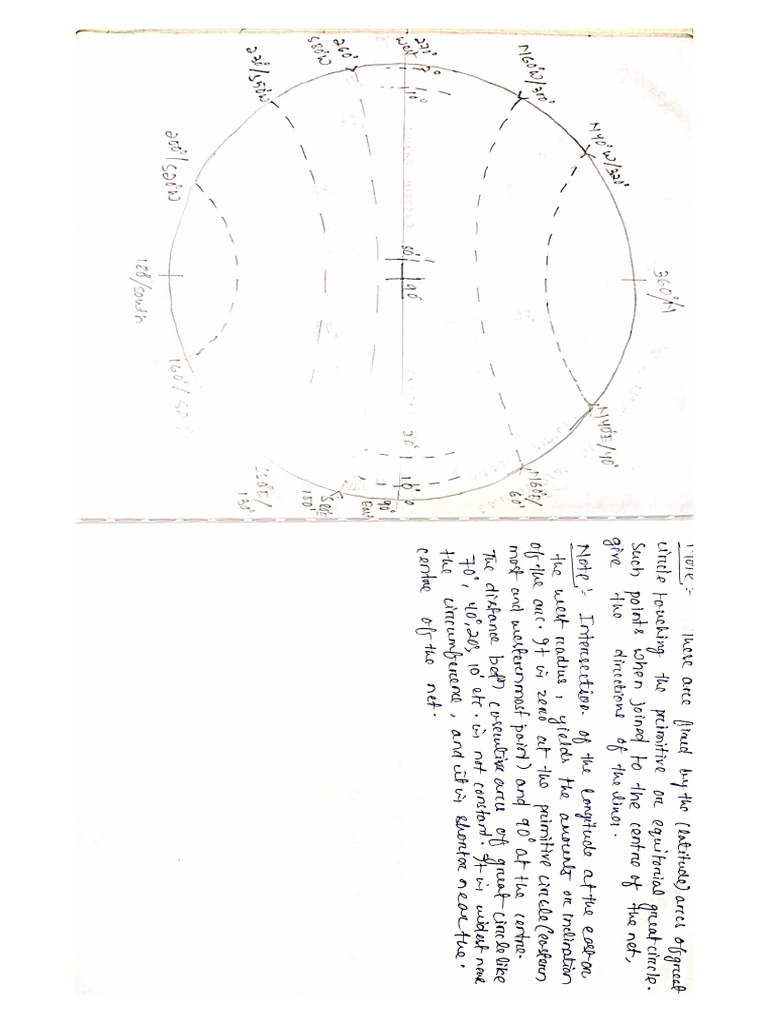 360°/N
N40°W/320°
N40°E/40°
N60°W/300°
N60°E/
60°
270°
West
0°
10°
80°
90°
20°
10°
0
90°
East
260°
S80°W
S80E/
100°
220°/S50°W
S50°E/
130°
200°/
S20°W
180°/South
160°/
Note:- These are fixed by the (latitude) arcs of great
circle touching the primitive or equitorial great circle.
Such points when joined to the centre of the net,
give the directions of the lines.
Note:- Intersection of the longitude at the east or
the west radius, yields the amounts or inclination
of the arc. It is zero at the primitive circle (eastern
most and westernmost point) and 90° at the centre.
The distance betn) cosecutive arcs of great circle like
70°, 40°, 20°, 10° etc. is not constant. It is widest near
the circumference, and it is shorter near the.
centre of the net.